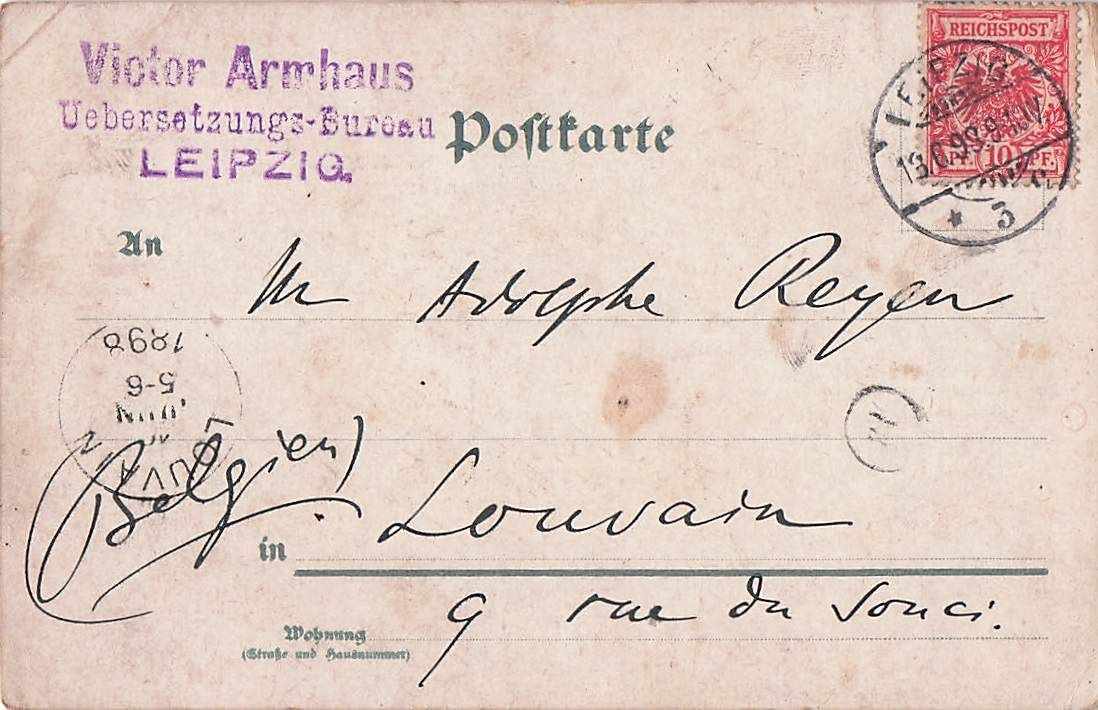 Victor Armhaus
Uebersetzungs-Bureau
LEIPZIG.
Postkarte
REICHSPOST
10 PF.
LEIPZIG
3
An
Mr Adolphe Reyen
1898
5-6
JUIN
LOUVAIN
(Belgien)
Louvain
in
9 rue du Souci.
Wohnung
(Straße und Hausnummer)